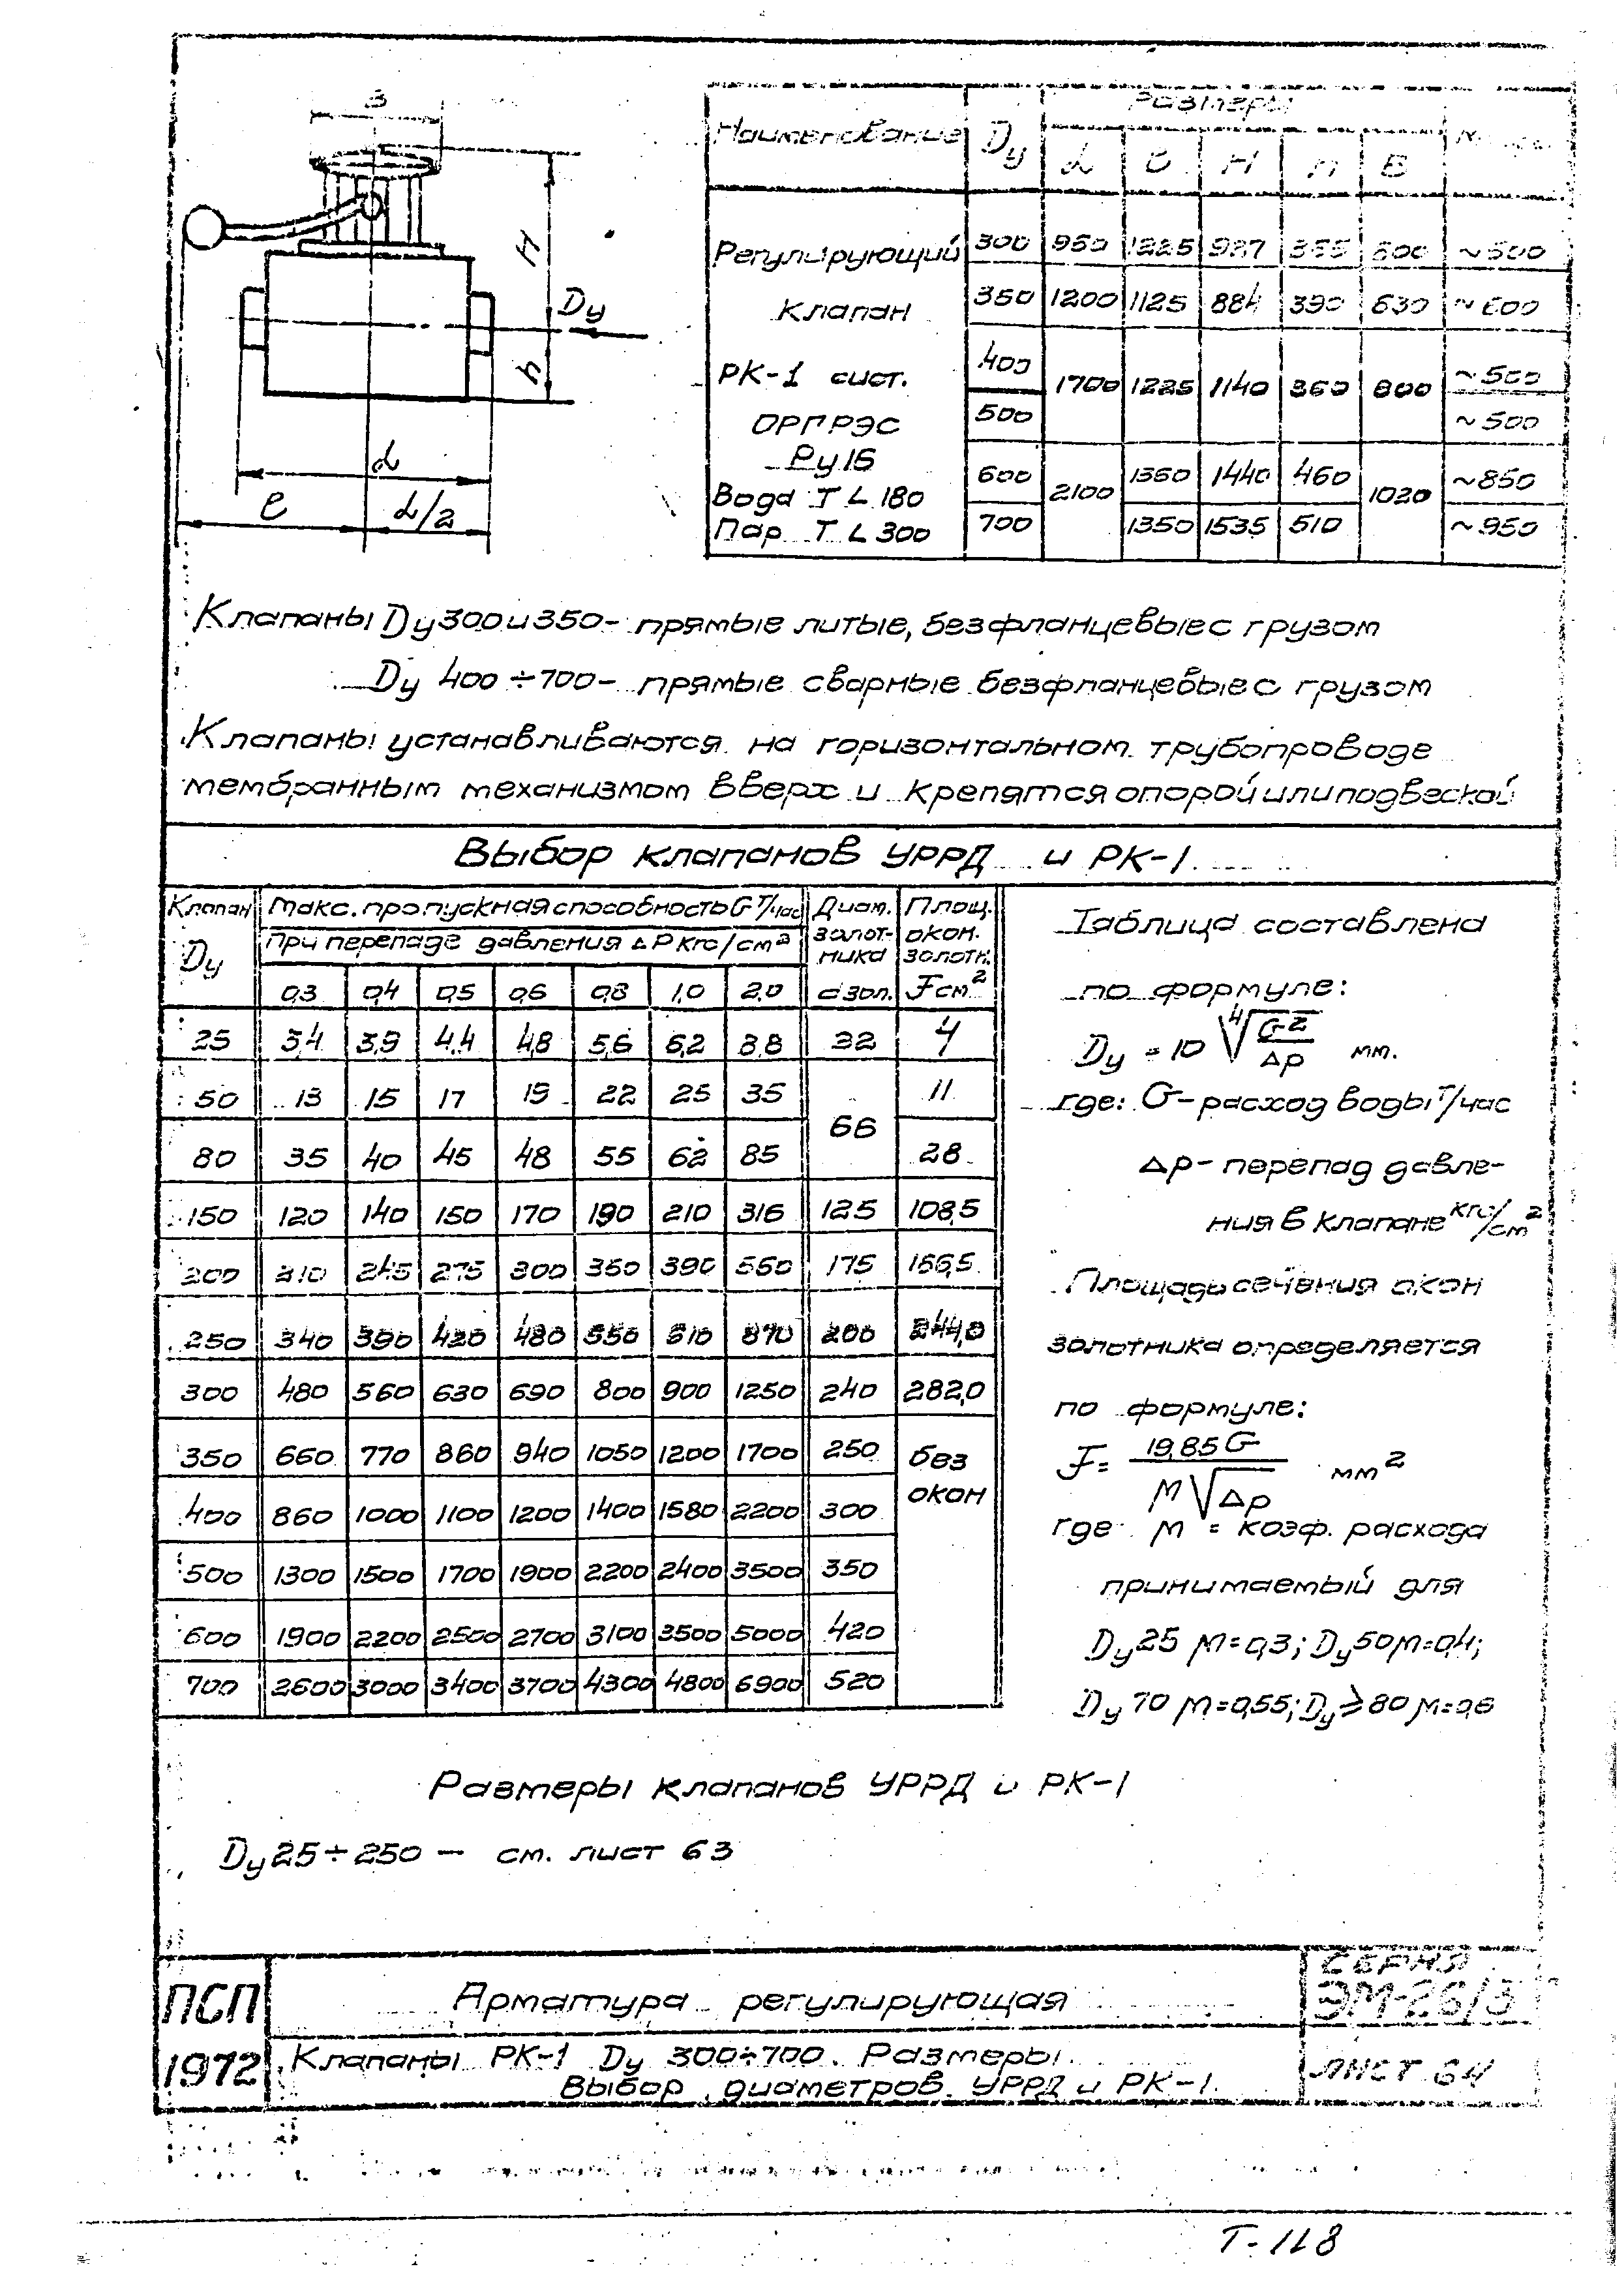 В
H
Dу
h
L
ℓ
L/2
Наименование Dу Размеры
L ℓ H h В
Регулирующий 300 950 1225 987 600 ~500
клапан 350 1200 1125 884 390 630 ~600
РК-1 сист. 400 1700 1225 1140 360 800 ~500
ОРГРЭС 500 ~500
Ру 16 600 2100 1350 1440 460 1020 ~850
Вода T L 180
Пар T L 300 700 1350 1535 510 ~950
Клапаны Dу 300 и 350 - прямые литые, безфланцевые с грузом
Dу 400 ÷ 700 - прямые сварные безфланцевые с грузом
Клапаны устанавливаются на горизонтальном трубопроводе
мембранным механизмом вверх и крепятся опорой или подвеской
Выбор клапанов УРРД и РК-1
Клапан Dу Макс. пропускная способность G т/час Диам. золотника d зол. Площ. окон. золотн. F см²
При перепаде давления ΔP кгс/см²
0,3 0,4 0,5 0,6 0,8 1,0 2,0
25 3,4 3,9 4,4 4,8 5,6 6,2 8,8 32 4
50 13 15 17 19 22 25 35 66 11
80 35 40 45 48 55 62 85 28
150 120 140 150 170 190 210 316 125 108,5
200 210 245 275 300 350 390 550 175 166,5
250 340 390 430 480 550 610 870 200 244,0
300 480 560 630 690 800 900 1250 240 282,0
350 660 770 860 940 1050 1200 1700 250 без окон
400 860 1000 1100 1200 1400 1580 2200 300
500 1300 1500 1700 1900 2200 2400 3500 350
600 1900 2200 2500 2700 3100 3500 5000 420
700 2600 3000 3400 3700 4300 4800 6900 520
Таблица составлена
по формуле:
Dу = 10 ⁴√(G²/Δp) мм.
где: G - расход воды т/час
Δp - перепад давле-
ния в клапане кгс/см²
Площадь сечения окон
золотника определяется
по формуле:
F = 19,85 G / M√Δp мм²
где M = коэф. расхода
принимаемый для
Dу 25 M = 0,3; Dу 50 M = 0,4;
Dу 70 M = 0,55; Dу ≥ 80 M = 0,6
Размеры клапанов УРРД и РК-1
Dу 25 ÷ 250 - см. лист 63
ПСП
1972
Арматура регулирующая
Клапаны РК-1 Dу 300÷700. Размеры.
Выбор диаметров УРРД и РК-1.
СЕРИЯ
ЭМ-26/3
ЛИСТ 64
Т-118